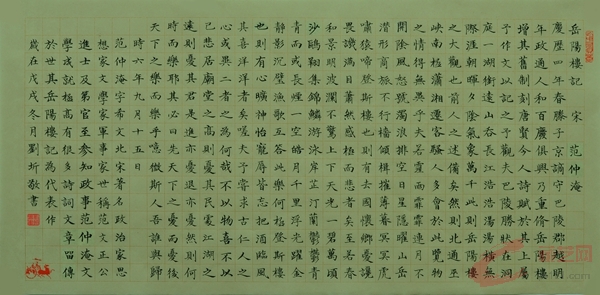 岳陽樓記 宋 范仲淹
慶歷四年春滕子京謫守巴陵郡越明
年政通人和百廢俱興乃重脩岳陽樓
增其舊制刻唐賢今人詩賦于其上屬
予作文以記之予觀夫巴陵勝狀在洞
庭一湖銜遠山吞長江浩浩湯湯橫無
際涯朝暉夕陰氣象萬千此則岳陽樓
之大觀也前人之述備矣然則北通巫
峽南極瀟湘遷客騷人多會於此覽物
之情得無異乎若夫霪雨霏霏連月不
開陰風怒號濁浪排空日星隱曜山岳
潛形商旅不行檣傾楫摧薄暮冥冥虎
嘯猿啼登斯樓也則有去國懷鄉憂讒
畏譏滿目蕭然感極而悲者矣至若春
和景明波瀾不驚上下天光一碧萬頃
沙鷗翔集錦鱗游泳岸芷汀蘭鬱鬱青
青而或長煙一空皓月千里浮光躍金
靜影沉璧漁歌互答此樂何極登斯樓
也則有心曠神怡寵辱皆忘把酒臨風
其喜洋洋者矣嗟夫予嘗求古仁人之
心或異二者之為何哉不以物喜不以
己悲居廟堂之高則憂其民處江湖之
遠則憂其君是進亦憂退亦憂然則何
時而樂耶其必曰先天下之憂而憂後
天下之樂而樂乎噫微斯人吾誰與歸
時六年九月十五日
范仲淹字希文北宋著名政治家思
想家文學家軍事家世稱范文正公
進士及第官至參知政事范仲淹文
學成就極高有很多詩詞文章留傳
於世其岳陽樓記為代表作
歲在戊戌冬月劉圻敬書